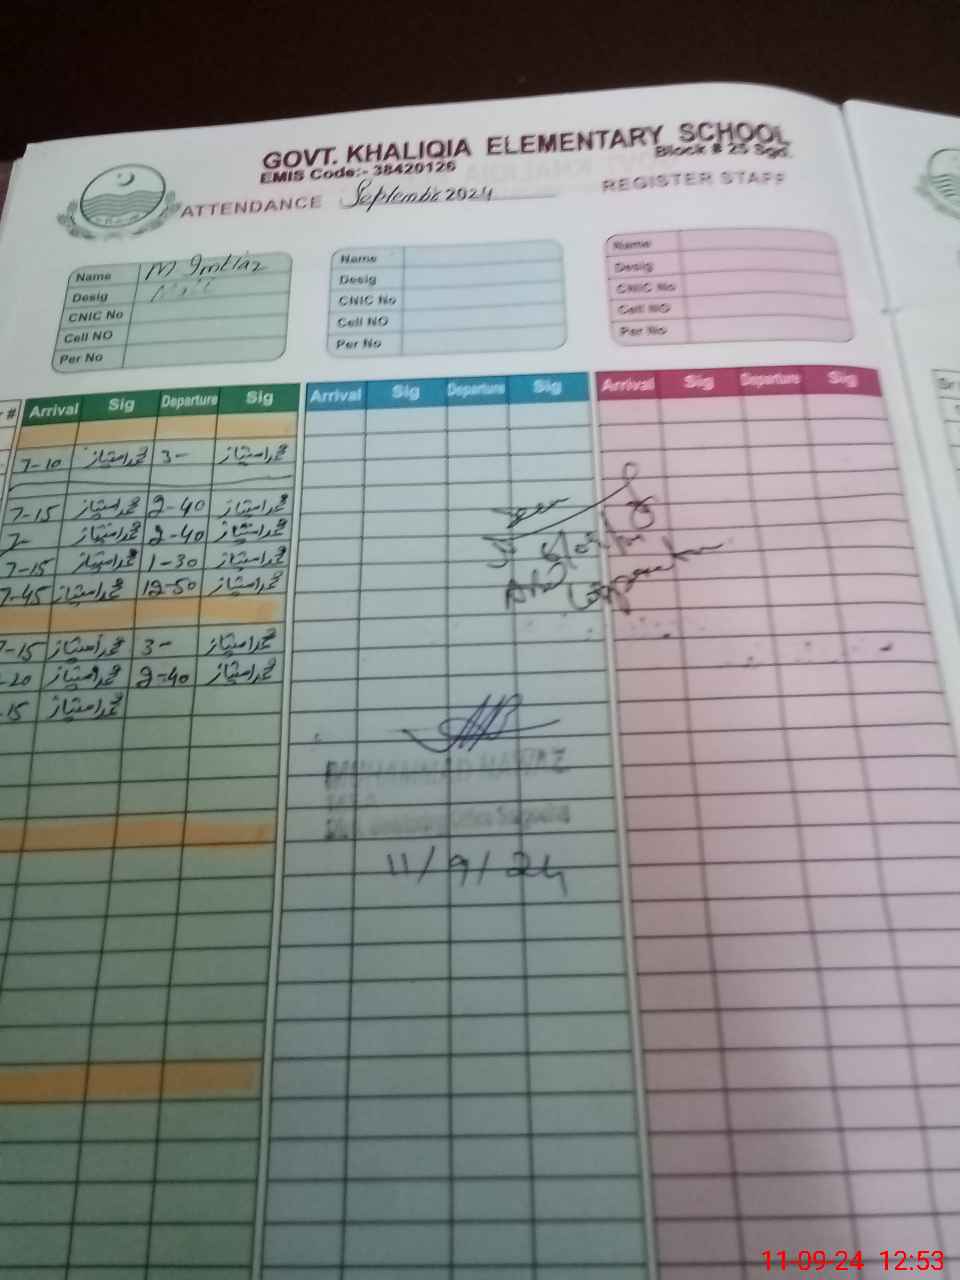 GOVT. KHALIQIA ELEMENTARY SCHOOL
EMIS Code:- 38420126
Block # 25 Sgd.
ATTENDANCE September 2024 REGISTER STAFF
Name M Imtiaz
Desig
CNIC No
Cell NO
Per No
Name
Desig
CNIC No
Cell NO
Per No
Name
Desig
CNIC No
Cell NO
Per No
Arrival Sig Departure Sig
7-10 محمد امتیاز 3- محمد امتیاز
7-15 محمد امتیاز 2-40 محمد امتیاز
7- محمد امتیاز 2-40 محمد امتیاز
7-15 محمد امتیاز 1-30 محمد امتیاز
7-45 محمد امتیاز 12-50 محمد امتیاز
-15 محمد امتیاز 3- محمد امتیاز
-20 محمد امتیاز 2-40 محمد امتیاز
-15 محمد امتیاز
Arrival Sig Departure Sig
MUHAMMAD NAWAZ
11/9/24
Arrival Sig Departure Sig
Seen
11-09-24 12:53